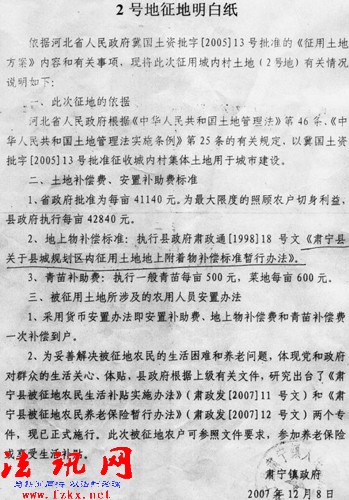 2号地征地明白纸
依据河北省人民政府冀国土资批字[2005]13号批准的《征用土地
方案》内容和有关事项，现将此次征用城内村土地（2号地）有关情况
说明如下：
一、此次征地的依据
河北省人民政府根据《中华人民共和国土地管理法》第46条、《中
华人民共和国土地管理法实施条例》第25条的有关规定，以冀国土资
批字[2005]13号批准征收城内村集体土地用于城市建设。
二、土地补偿费、安置补助费标准
1、省政府批准为每亩41140元，为最大限度的照顾农户切身利益，
县政府执行每亩42840元。
2、地上物补偿标准：执行县政府肃政通[1998]18号文《肃宁县
关于县城规划区内征用土地地上附着物补偿标准暂行办法》。
3、青苗补助费：执行一般青苗每亩500元，菜地每亩600元。
三、被征用土地所涉及的农用人员安置办法
1、采用货币安置办法即安置补助费、地上物补偿费和青苗补偿费
一次补偿到户。
2、为妥善解决被征地农民的生活困难和养老问题，体现党和政府
对群众的生活关心、体贴，县政府根据上级有关文件，研究出台了《肃
宁县被征地农民生活补贴实施办法》（肃政发[2007]11号文）和《肃宁
县被征地农民养老保险暂行办法》（肃政发[2007]12号文）两个专
件，现已正式施行。此次被征地农户可参照文件要求，参加养老保险
或享受生活补贴。
肃宁镇政府
2007年12月8日
法讯网
www.fzkx.net